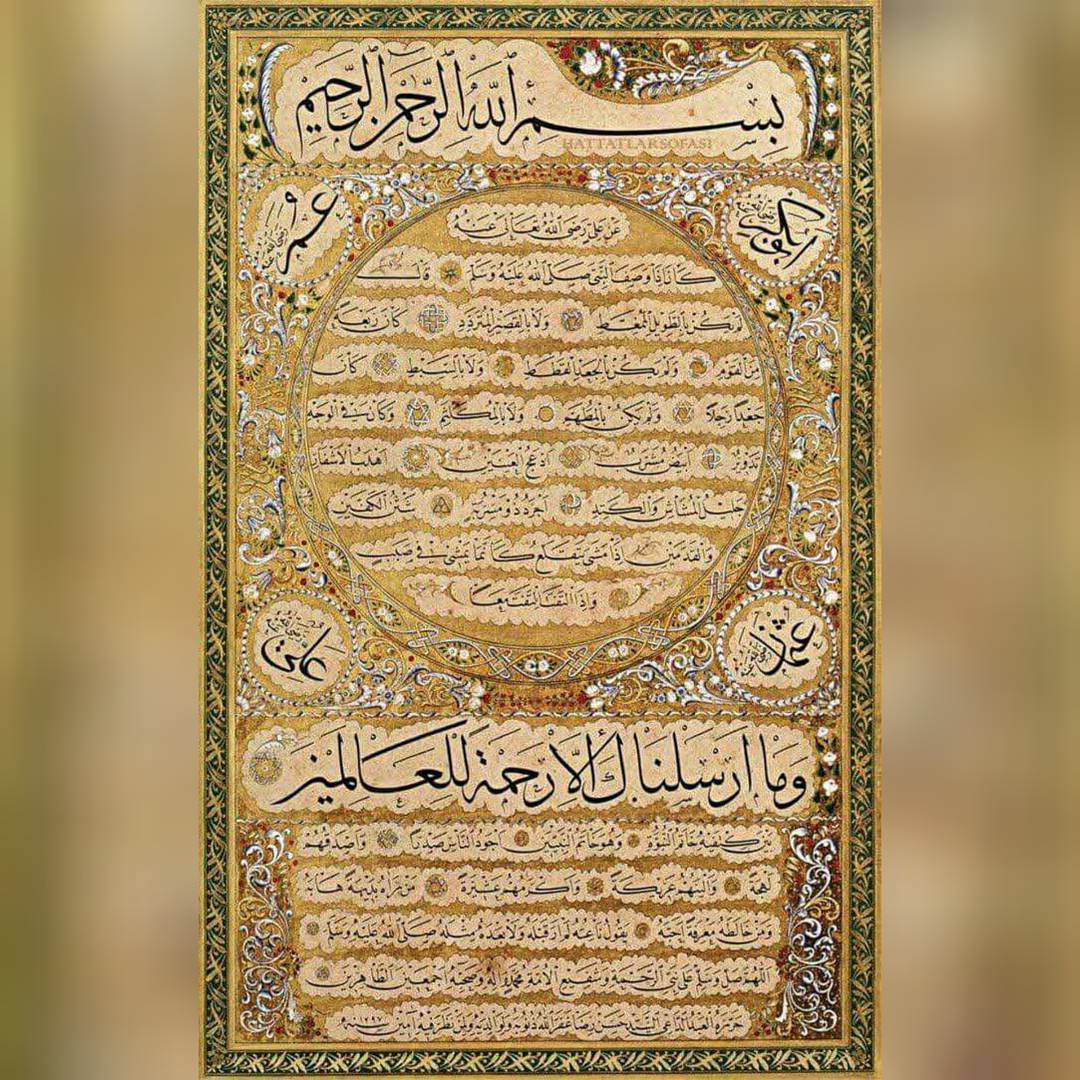 بسم الله الرحمن الرحيم
HATTATLARSOFASI
ابو بكر رضي الله عنه
عمر رضي الله عنه
عن علي رضي الله تعالى عنه
كان اذا وصف النبي صلى الله عليه وسلم قال
لم يكن بالطويل الممغط ولا بالقصير المتردد كان ربعة
من القوم ولم يكن بالجعد القطط ولا بالسبط كان
جعدا رجلا ولم يكن بالمطهم ولا بالمكلثم وكان في الوجه
تدوير ابيض مشرب ادعج العينين اهدب الاشفار
جليل المشاش والكتد اجرد ذو مسربة شثن الكفين
والقدمين اذا مشى يتقلع كانما يمشي في صبب
واذا التفت التفت معا
عثمان رضي الله عنه
علي رضي الله عنه
وما ارسلناك الا رحمة للعالمين
بين كتفيه خاتم النبوة وهو خاتم النبيين اجود الناس صدرا واصدقهم
لهجة والينهم عريكة واكرمهم عشيرة من رآه بديهة هابه
ومن خالطه معرفة احبه يقول ناعته لم ار قبله ولا بعده مثله صلى الله عليه وسلم
اللهم صل وسلم على نبي الرحمة وشفيع الامة محمد وآله وصحبه اجمعين الطاهرين
حرره العبد الداعي السيد حسن رضا غفر الله ذنوبه ولوالديه ولمن نظر فيه آمين